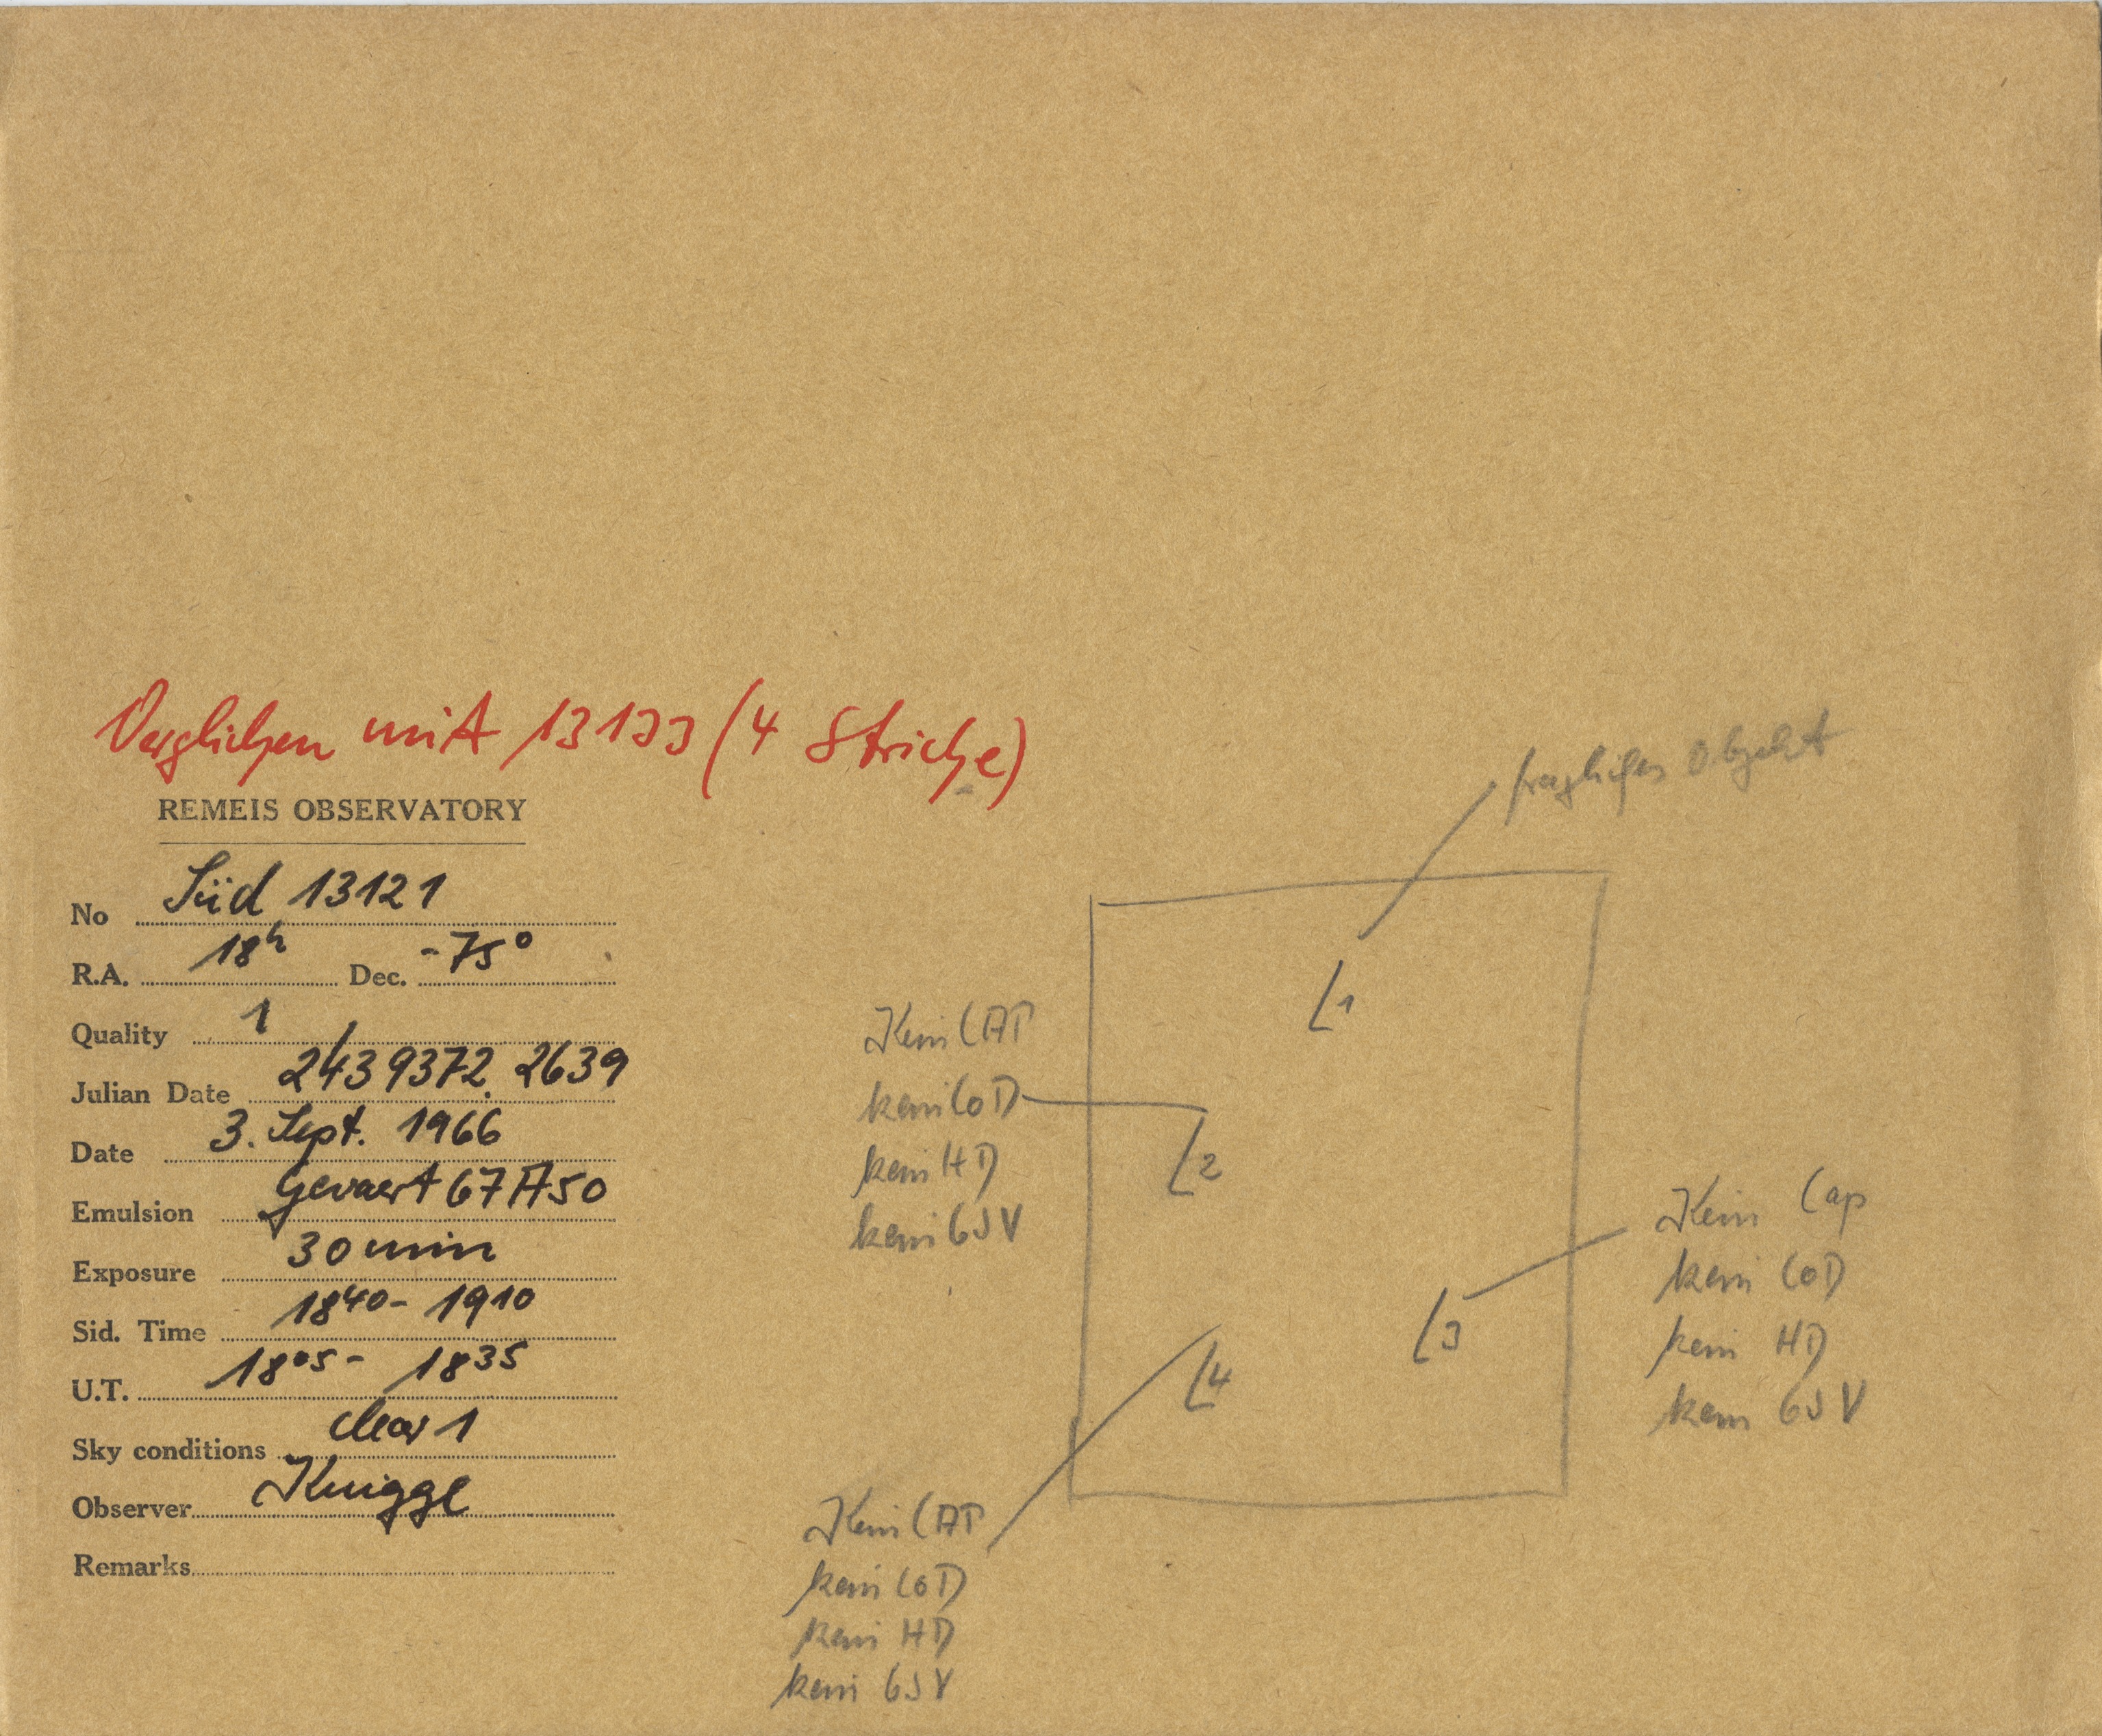 Verglichen mit 13133 (4 Striche)
REMEIS OBSERVATORY
No Süd 13121
R.A. 18h Dec. -75°
Quality 1
Julian Date 2439372.2639
Date 3. Sept. 1966
Emulsion Gevaert 67A50
Exposure 30 min
Sid. Time 18 40 - 19 10
U.T. 18 05 - 18 35
Sky conditions clear 1
Observer Knigge
Remarks
fragliches Objekt
1
Kein CAP
kein CoD
kein HD
kein GSV
2
Kein Cap
kein CoD
kein HD
kein GSV
3
4
Kein CAP
kein CoD
kein HD
kein GSV